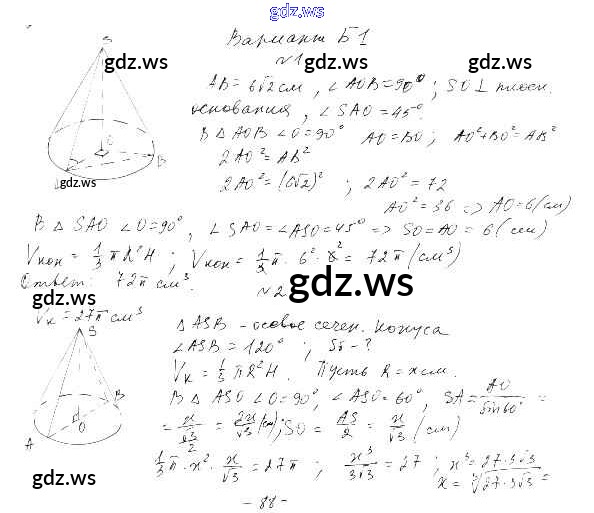 gdz.ws
Вариант Б1
gdz.ws
gdz.ws
№1
AB = 6√2 см, ∠AOB = 90°; SO ⊥ плоск.
основания, ∠SAO = 45°.
В △AOB ∠O = 90° AO = BO; AO² + BO² = AB²
2AO² = AB²
2AO² = (6√2)²; 2AO² = 72
AO² = 36 => AO = 6 (см)
S
O
B
gdz.ws
В △SAO ∠O = 90°, ∠SAO = ∠ASO = 45° => SO = AO = 6 (см)
Vкон = 1/3 πR²H; Vкон = 1/3 π · 6² · 6² = 72π (см³)
Ответ: 72π см³.
gdz.ws
gdz.ws
№2
Vк = 27π см³
△ASB - осевое сечен. конуса
∠ASB = 120°; Sб - ?
Vк = 1/3 πR²H. Пусть R = x см.
В △ASO ∠O = 90°, ∠ASO = 60°, SA = AO/sin60° =
= x/(√3/2) = 2x/√3 (см); SO = AS/2 = x/√3 (см)
1/3 π · x² · x/√3 = 27π; x³/3√3 = 27; x³ = 27·3√3
x = ³√27·3√3 =
S
A
O
B
gdz.ws
gdz.ws
- 88 -
gdz.ws